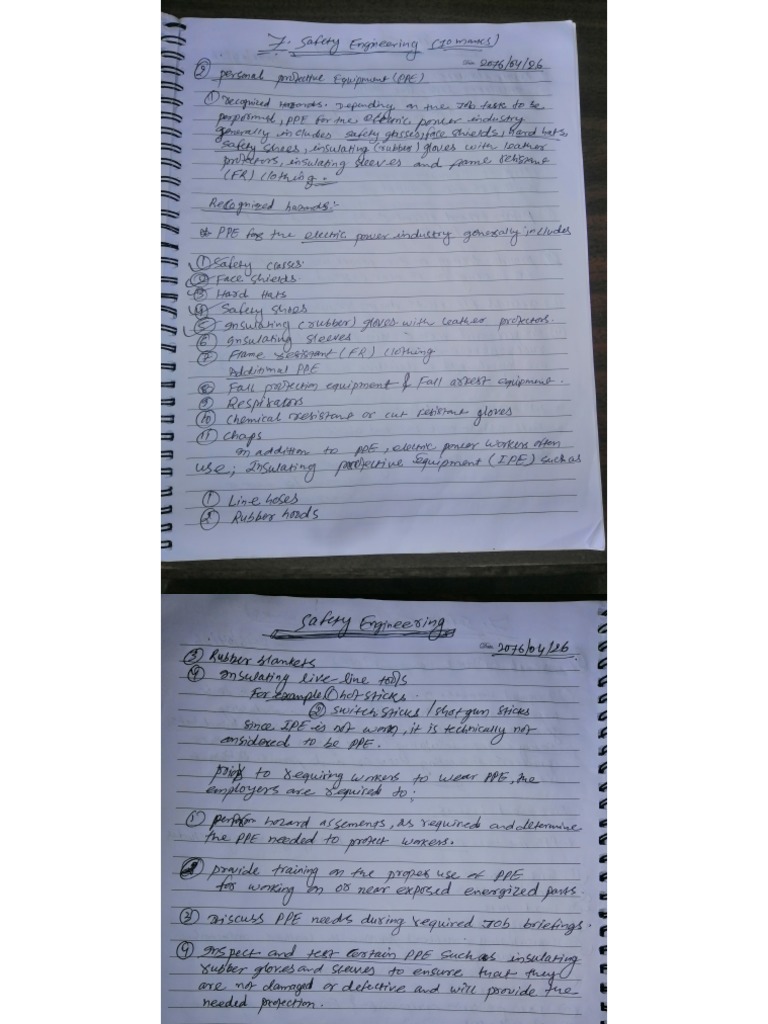 7. Safety Engineering (10 marks)
2076/04/26
② personal protective Equipment (PPE)
① recognized Hazards. Depending on the Job task to be
performed, PPE for the electric power industry
generally includes safety glasses, face shields, hard hats,
safety shoes, insulating (rubber) gloves with leather
protectors, insulating sleeves and fame resistant
(FR) clothing.
Recognized hazards:-
PPE for the electric power industry generally includes
① Safety classes.
② Face shields
③ Hard Hats
④ Safety shoes
⑤ insulating (rubber) gloves with leather protectors.
⑥ insulating sleeves
⑦ Frame resistant (FR) clothing
Additional PPE
⑧ Fall protection equipment & Fall arrest equipment.
⑨ Respirators
⑩ Chemical resistant or cut resistant gloves
⑪ Chaps
in addition to PPE, electric power workers often
use; Insulating protective equipment (IPE) such as
① Line hoses
② Rubber hoods
Safety Engineering
2076/04/26
③ Rubber blankets
④ insulating live-line tools
For example ① hot sticks.
② switch sticks / shotgun sticks
since IPE is not worn, it is technically not
considered to be PPE.
prior to requiring workers to wear PPE, the
employers are required to;
① perform hazard assements, as required and determine
the PPE needed to protect workers.
② provide training on the proper use of PPE
for working on or near exposed energized parts.
③ Discuss PPE needs during required Job briefings.
④ inspect and test certain PPE such as insulating
rubber gloves and sleeves to ensure that they
are not damaged or defective and will provide the
needed protection.